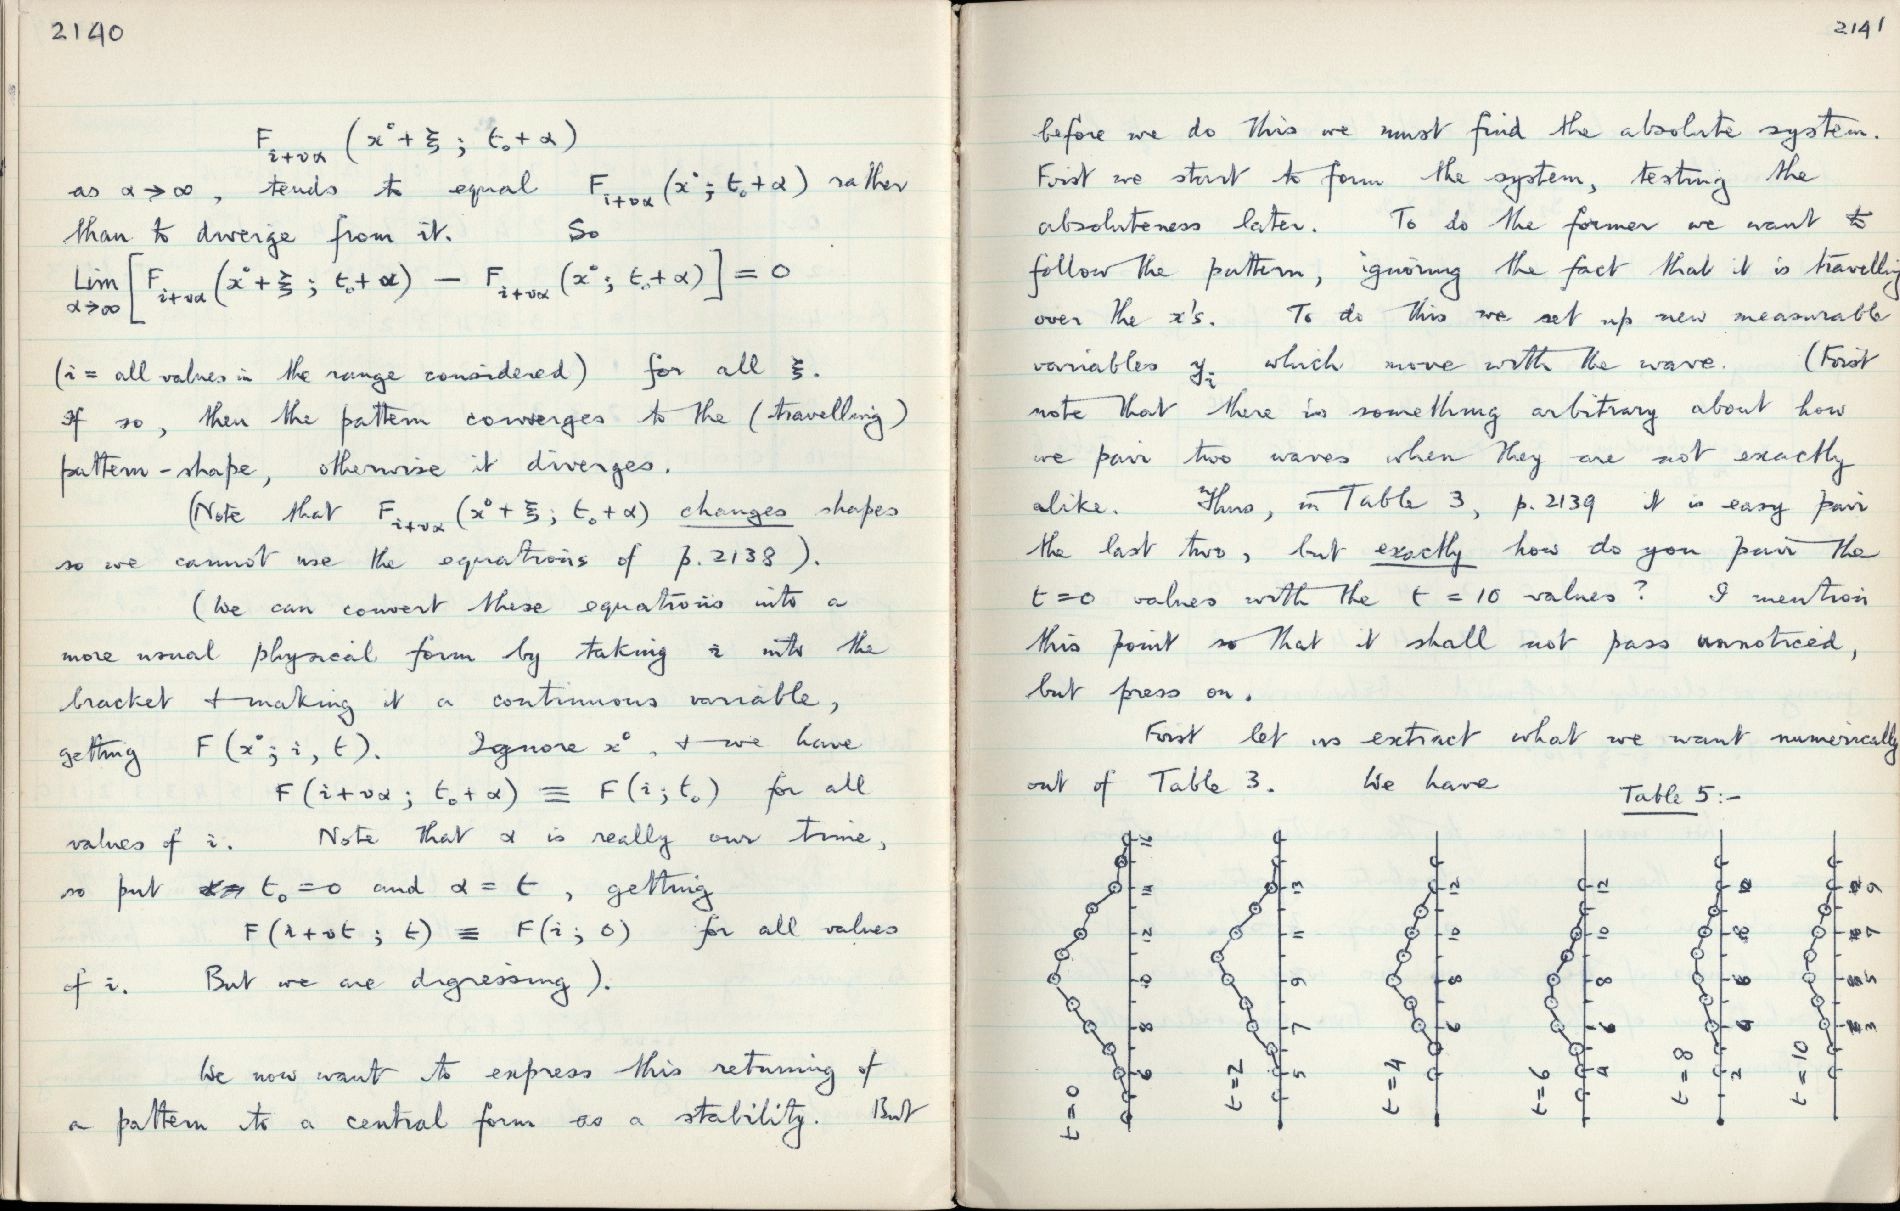 2140
F_{i+vα} (x° + ξ ; t₀ + α)
as α → ∞ , tends to equal F_{i+vα} (x° ; t₀ + α) rather
than to diverge from it. So
Lim_{α→∞} [ F_{i+vα} (x° + ξ ; t₀ + α) − F_{i+vα} (x° ; t₀ + α) ] = 0
(i = all values in the range considered) for all ξ.
If so, then the pattern converges to the (travelling)
pattern-shape, otherwise it diverges.
(Note that F_{i+vα} (x° + ξ ; t₀ + α) changes shapes
so we cannot use the equations of p. 2138 ).
(We can convert these equations into a
more usual physical form by taking i into the
bracket + making it a continuous variable,
getting F (x° ; i, t). Ignore x° , + we have
F (i+vα ; t₀ + α) ≡ F (i ; t₀) for all
values of i. Note that α is really our time,
so put t₀ = 0 and α = t , getting
F (i + vt ; t) ≡ F (i ; 0) for all values
of i. But we are digressing ).
We now want to express this returning of
a pattern to a central form as a stability. But
2141
before we do this we must find the absolute system.
First we start to form the system, testing the
absoluteness later. To do the former we want to
follow the pattern, ignoring the fact that it is travelling
over the x's. To do this we set up new measurable
variables y_i which move with the wave. (First
note that there is something arbitrary about how
we pair two waves when they are not exactly
alike. Thus, in Table 3, p. 2139 it is easy pair
the last two, but exactly how do you pair the
t = 0 values with the t = 10 values ? I mention
this point so that it shall not pass unnoticed,
but press on.
First let us extract what we want numerically
out of Table 3. We have Table 5 :-
t=0 6 8 12
t=2 5 7 9 11 13
t=4 6 8 10 12
t=6 4 6 8 10 12
t=8 2 4 6
t=10 3 5 7 9